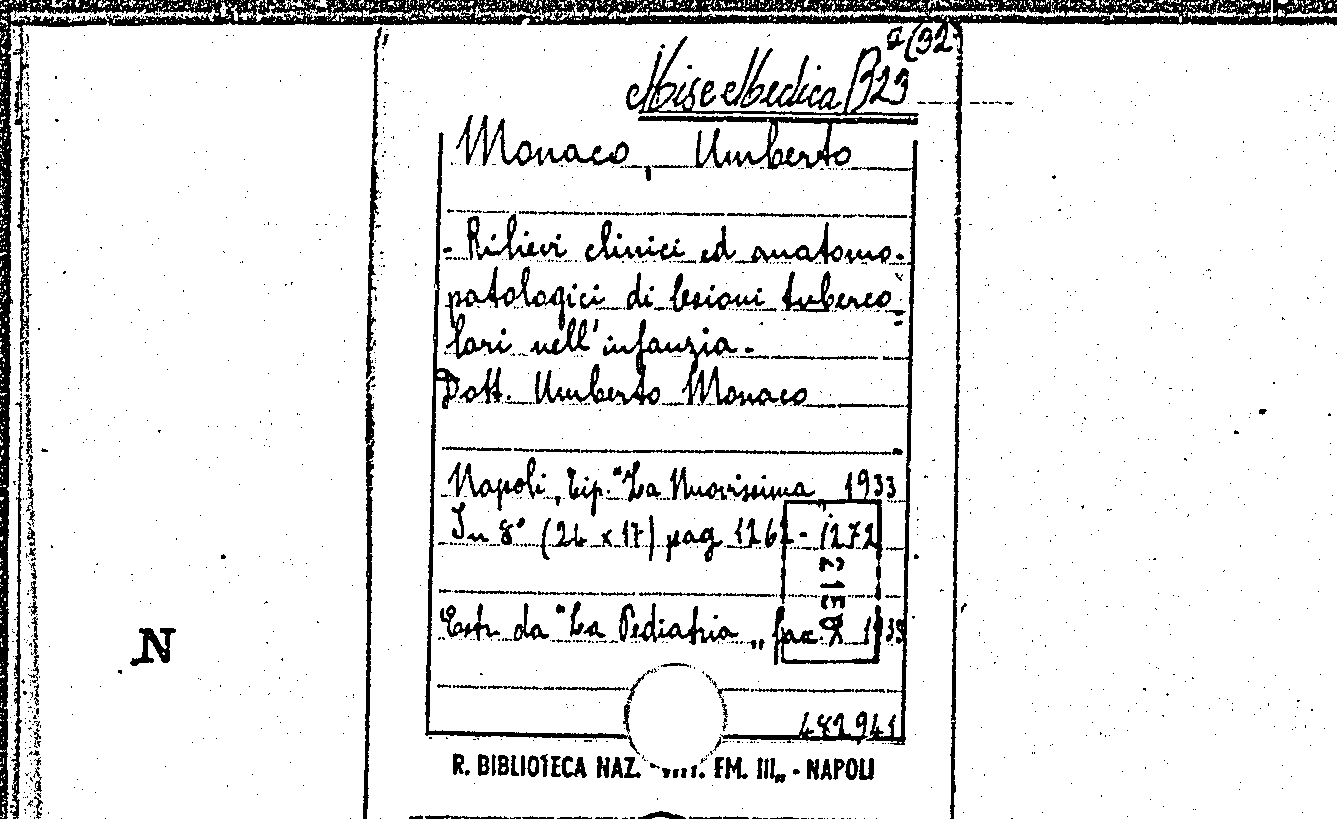 Misc Medica B23 a(32
Monaco, Umberto
- Rilievi clinici ed anatomo-
patologici di lesioni tuberco=
lari nell'infanzia.
Dott. Umberto Monaco
Napoli, Tip. "La Nuovissima 1933
In 8° (24 x 17) pag 1261 - 1272
2150
Estr. da "La Pediatria„ fac. X 1933
482941
N
R. BIBLIOTECA NAZ. EM. III„ - NAPOLI